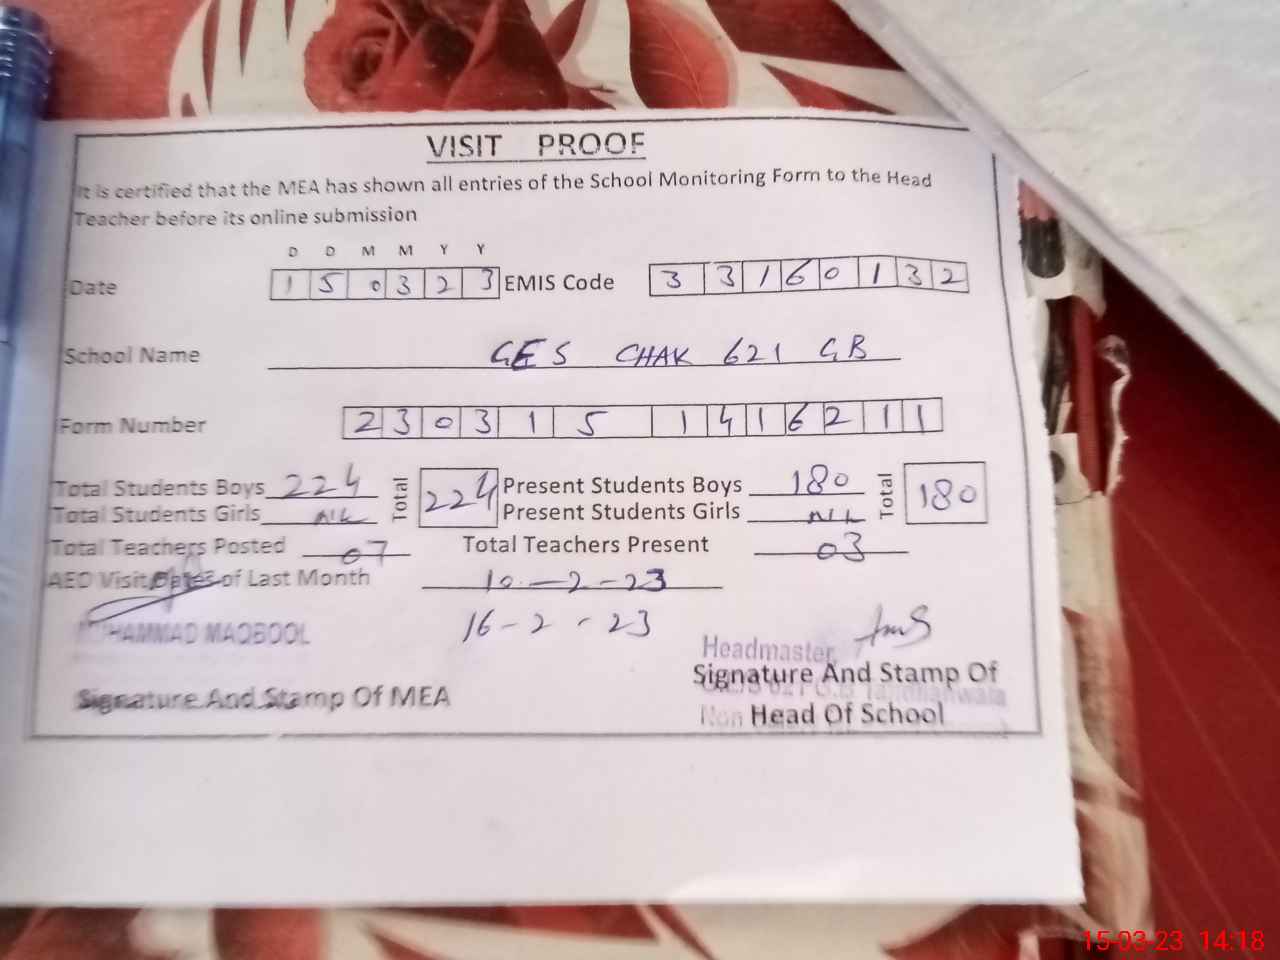 VISIT PROOF
It is certified that the MEA has shown all entries of the School Monitoring Form to the Head
Teacher before its online submission
D D M M Y Y
Date 1 5 0 3 2 3 EMIS Code 3 3 1 6 0 1 3 2
School Name GES CHAK 621 GB
Form Number 2 3 0 3 1 5 1 4 1 6 2 1 1
Total Students Boys 224 Total 224 Present Students Boys 180 Total 180
Total Students Girls Nil Present Students Girls Nil
Total Teachers Posted 07 Total Teachers Present 03
AEO Visit Dates of Last Month 10-2-23
16-2-23
MUHAMMAD MAQBOOL
Headmaster
Signature And Stamp Of MEA
Signature And Stamp Of
Head Of School
15-03-23 14:18